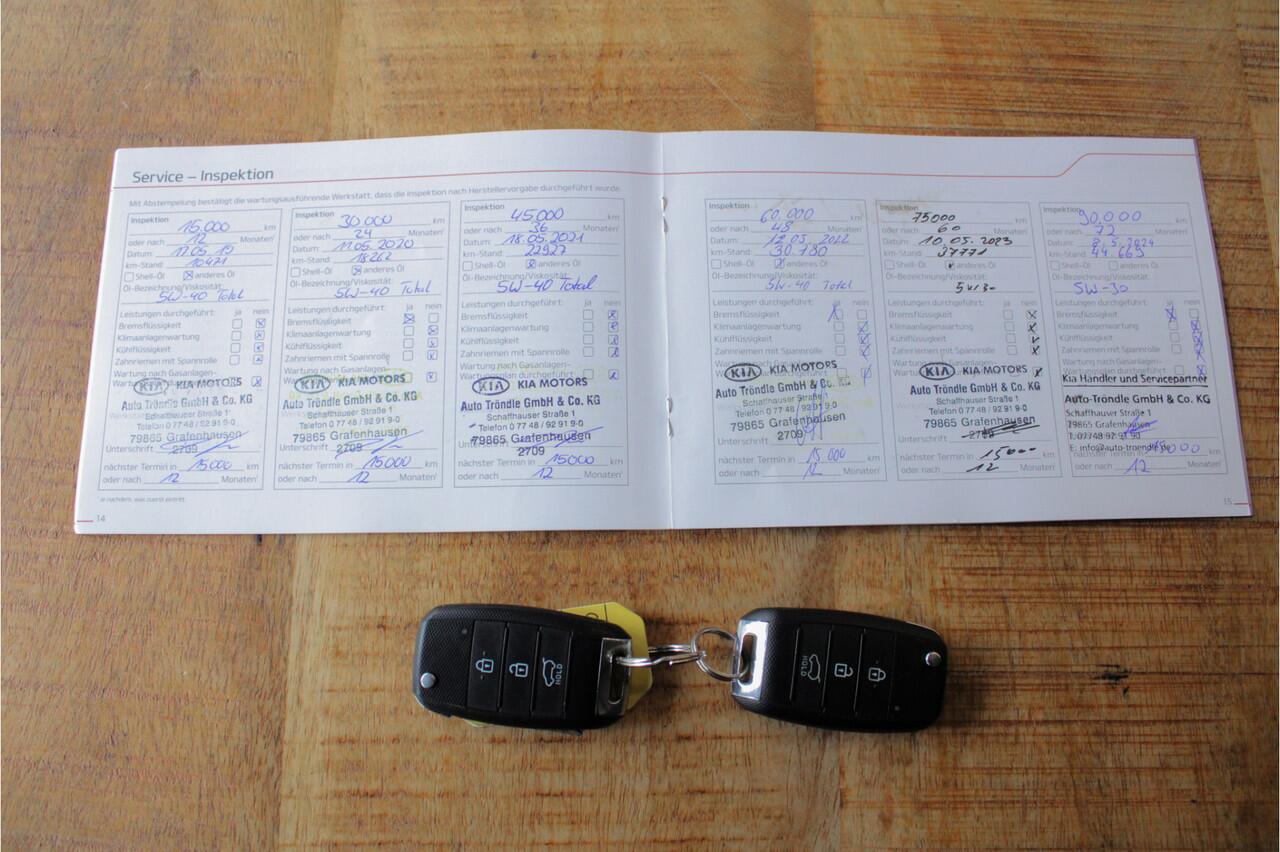 Service – Inspektion
Mit Abstempelung bestätigt die wartungsausführende Werkstatt, dass die Inspektion nach Herstellervorgabe durchgeführt wurde.
Inspektion 15.000 km
oder nach 12 Monaten¹
Datum: 17.05.19
km-Stand: 10471
Shell-Öl anderes Öl
Öl-Bezeichnung/Viskosität:
5W-40 Total
Leistungen durchgeführt: ja nein
Bremsflüssigkeit
Klimaanlagenwartung
Kühlflüssigkeit
Zahnriemen mit Spannrolle
Wartung nach Gasanlagen-
KIA KIA MOTORS
Auto Tröndle GmbH & Co. KG
Schaffhauser Straße 1
Telefon 0 77 48 / 92 91 9-0
79865 Grafenhausen
Unterschrift 2709
nächster Termin in 15000 km
oder nach 12 Monaten¹
Inspektion 30000 km
oder nach 24 Monaten¹
Datum: 11.05.2020
km-Stand: 18262
Shell-Öl anderes Öl
Öl-Bezeichnung/Viskosität:
5W-40 Total
Leistungen durchgeführt: ja nein
Bremsflüssigkeit
Klimaanlagenwartung
Kühlflüssigkeit
Zahnriemen mit Spannrolle
Wartung nach Gasanlagen-
KIA KIA MOTORS
Auto Tröndle GmbH & Co. KG
Schaffhauser Straße 1
Telefon 0 77 48 / 92 91 9-0
79865 Grafenhausen
Unterschrift 2709
nächster Termin in 15000 km
oder nach 12 Monaten¹
Inspektion 45000 km
oder nach 36 Monaten¹
Datum: 18.05.2021
km-Stand: 22927
Shell-Öl anderes Öl
Öl-Bezeichnung/Viskosität:
5W-40 Total
Leistungen durchgeführt: ja nein
Bremsflüssigkeit
Klimaanlagenwartung
Kühlflüssigkeit
Zahnriemen mit Spannrolle
Wartung nach Gasanlagen-
Wartungsplan durchgeführt:
KIA KIA MOTORS
Auto Tröndle GmbH & Co. KG
Schaffhauser Straße 1
Telefon 0 77 48 / 92 91 9-0
79865 Grafenhausen
2709
nächster Termin in 15000 km
oder nach 12 Monaten¹
¹ Je nachdem, was zuerst eintritt.
14
Inspektion 60.000 km
oder nach 48 Monaten¹
Datum: 12.05.2022
km-Stand: 30.780
Shell-Öl anderes Öl
Öl-Bezeichnung/Viskosität:
5W-40 Total
Leistungen durchgeführt: ja nein
Bremsflüssigkeit
Klimaanlagenwartung
Kühlflüssigkeit
Zahnriemen mit Spannrolle
Wartung nach Gasanlagen-
KIA KIA MOTORS
Auto Tröndle GmbH & Co. KG
Schaffhauser Straße 1
Telefon 0 77 48 / 92 91 9-0
79865 Grafenhausen
Unterschrift 2709
nächster Termin in 15 000 km
oder nach 12 Monaten¹
Inspektion 75000 km
oder nach 60 Monaten¹
Datum: 10.05.2023
km-Stand: 37771
Shell-Öl anderes Öl
Öl-Bezeichnung/Viskosität:
5W30
Leistungen durchgeführt: ja nein
Bremsflüssigkeit
Klimaanlagenwartung
Kühlflüssigkeit
Zahnriemen mit Spannrolle
Wartung nach Gasanlagen-
KIA KIA MOTORS
Auto Tröndle GmbH & Co. KG
Schaffhauser Straße 1
Telefon 0 77 48 / 92 91 9-0
79865 Grafenhausen
Unterschrift 2709
nächster Termin in 15000 km
oder nach 12 Monaten¹
Inspektion 90.000 km
oder nach 72 Monaten¹
Datum: 8.5.2024
km-Stand: 44.663
Shell-Öl anderes Öl
Öl-Bezeichnung/Viskosität:
5W-30
Leistungen durchgeführt: ja nein
Bremsflüssigkeit
Klimaanlagenwartung
Kühlflüssigkeit
Zahnriemen mit Spannrolle
Wartung nach Gasanlagen-
Kia Händler und Servicepartner
Auto-Tröndle GmbH & Co. KG
Schaffhauser Straße 1
79865 Grafenhausen
T. 07748 92 91 90
E. info@auto-troendle.de
nächster Termin in 15000 km
oder nach 12 Monaten¹
15
HOLD
HOLD